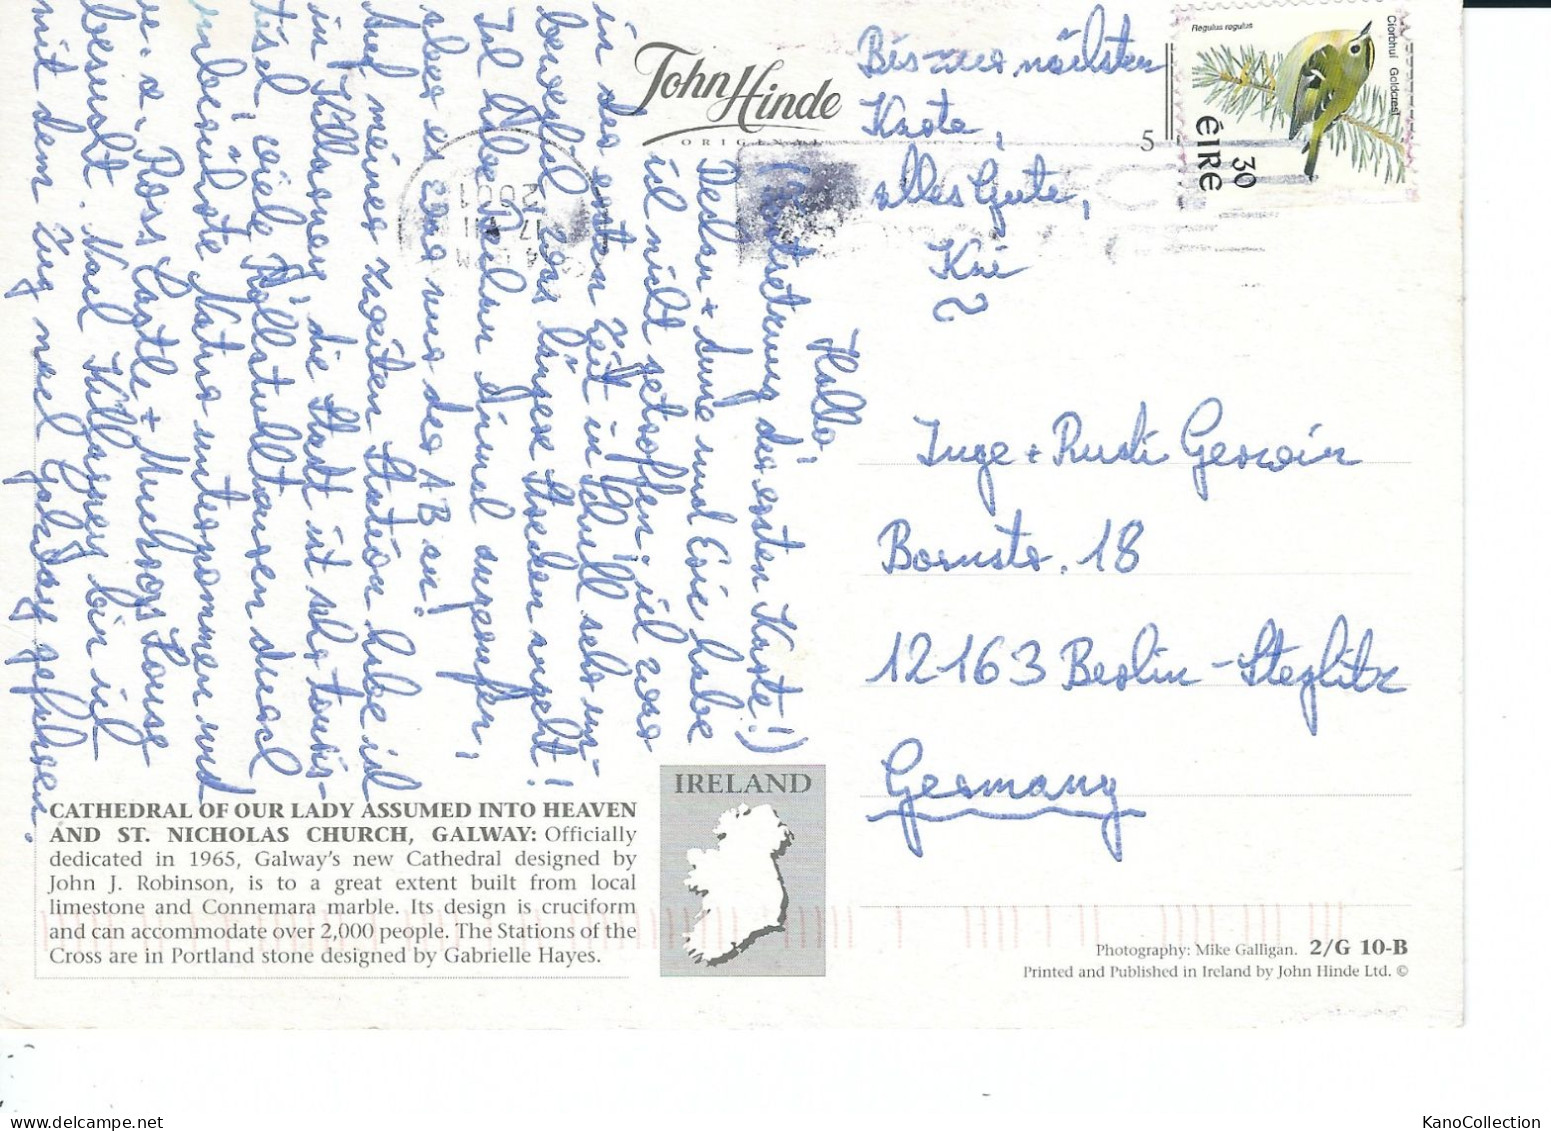 John Hinde
ORIGINAL
5
Regulus regulus
Cíorbhuí Goldcrest
ÉIRE 30
17
2001
Hallo!
(Fortsetzung der ersten Karte!)
Declan + Anne und Eoie habe
ich nicht getroffen, ich war
in der ersten Zeit in Schull sehr im-
beweglich, was längere Strecken angeht!
Ich habe Declan 2 x mal angerufen,
aber es war nur der AB an!
Auf meiner zweiten Station habe ich
in Killarney die Stadt ist sehr touris-
tisch, viele Rollstuhltouren durch
die Natur unternommen und
u. a. Ross Castle + Muckross House
besucht. Nach Killarney bin ich
mit dem Zug nach Galway gefahren.
Bis zur nächsten
Karte,
alles Gute,
Kai
Inge + Rudi Gerwin
Bornstr. 18
12163 Berlin-Steglitz
Germany
CATHEDRAL OF OUR LADY ASSUMED INTO HEAVEN
AND ST. NICHOLAS CHURCH, GALWAY: Officially
dedicated in 1965, Galway's new Cathedral designed by
John J. Robinson, is to a great extent built from local
limestone and Connemara marble. Its design is cruciform
and can accommodate over 2,000 people. The Stations of the
Cross are in Portland stone designed by Gabrielle Hayes.
IRELAND
Photography: Mike Galligan. 2/G 10-B
Printed and Published in Ireland by John Hinde Ltd. ©
KanoCollection